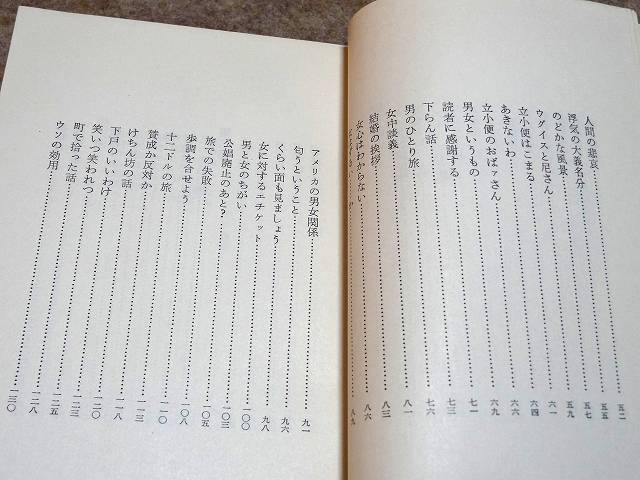 人間の悲哀……五二
浮気の大義名分……五五
のどかな風景……五七
ウグイスと尼さん……五九
立小便はこまる……六一
あきないわ……六四
立小便のおばァさん……六六
男女というもの……六九
読者に感謝する……七一
下らん話……七三
男のひとり旅……七六
女中談義……八一
結婚の挨拶……八三
女心はわからない……八六
八九
アメリカの男女関係……九一
匂うということ……九六
くらい面も見ましょう……九八
女に対するエチケット……一〇〇
男と女のちがい……一〇三
公娼廃止のあと?……一〇五
旅での失敗……一〇八
歩調を合せよう……一一〇
十二ドルの旅……一一三
賛成か反対か……一一八
けちん坊の話……一二〇
下戸のいいわけ……一二三
笑いつ笑われつ……一二五
町で拾った話……一二八
ウソの効用……一三〇